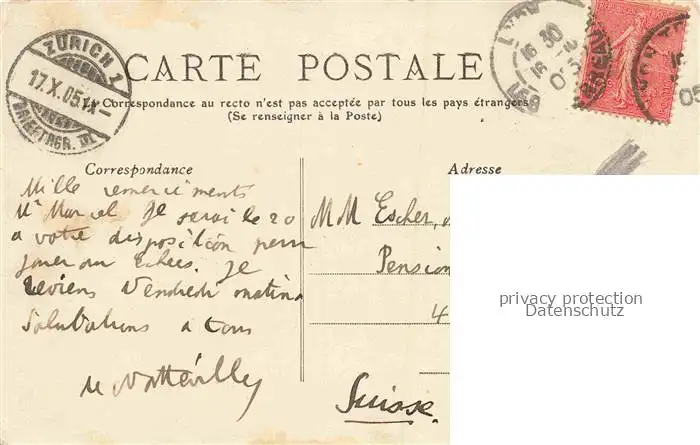 CARTE POSTALE
La Correspondance au recto n'est pas acceptée par tous les pays étrangers
(Se renseigner à la Poste)
ZÜRICH 1
17.X.05.IX-
BRIEFTRGR.
LYON
16 30
16
05
Correspondance
Mille remerciements
Mr Marcel Je serai le 20
a votre disposition pour
jouer au Echecs. Je
reviens Vendredi matin
Salutations a tous
Adresse
MM Escher,
Pension
4
Suisse.
privacy protection
Datenschutz